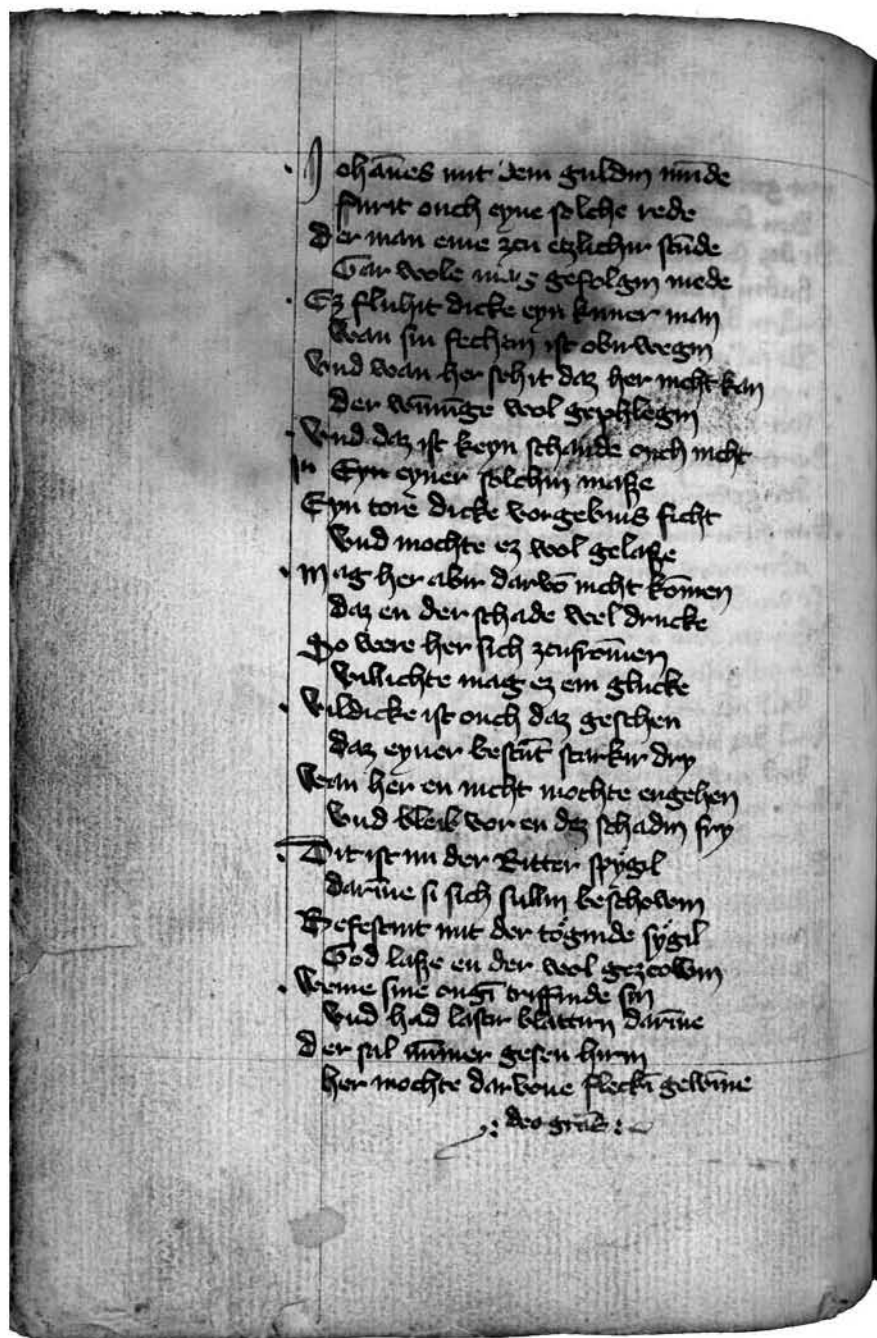 Johānes mit dem guldin mūde
furit ouch eyne solche rede
der man eme zcu etzlichir stūde
Gar wole mag gefolgin mede
Ez fluhit dicke eyn kuner man
wan sin fechtin ist obirwegin
vnd wan her sehit daz her nicht kan
der wēninge wol gephlegin
vnd daz ist keyn schande ouch nicht
in Eyn eyner solchin maße
Eyn torē dicke vorgebins ficht
vnd mochte ez wol gelaße
Mag her abir darvō nicht kōmen
daz en der schade wel drucke
So were her sich zcufrōmen
villichte mag ez em glucke
vildicke ist ouch daz geschen
daz eyner bestūt starkir dry
wan her en nicht mochte engehen
vnd bleib vor en dez schadin fry
Dit ist nu der Ritter spygil
darīne si sich sullin beschowin
Befestint mit der töginde sygil
God laße en der wol gezcowin
weme sine ougī triffinde sin
vnd had lastir blattirn darīne
der sal nūmer gesen hirin
her mochte darvone fleckī gewīne
deo grās